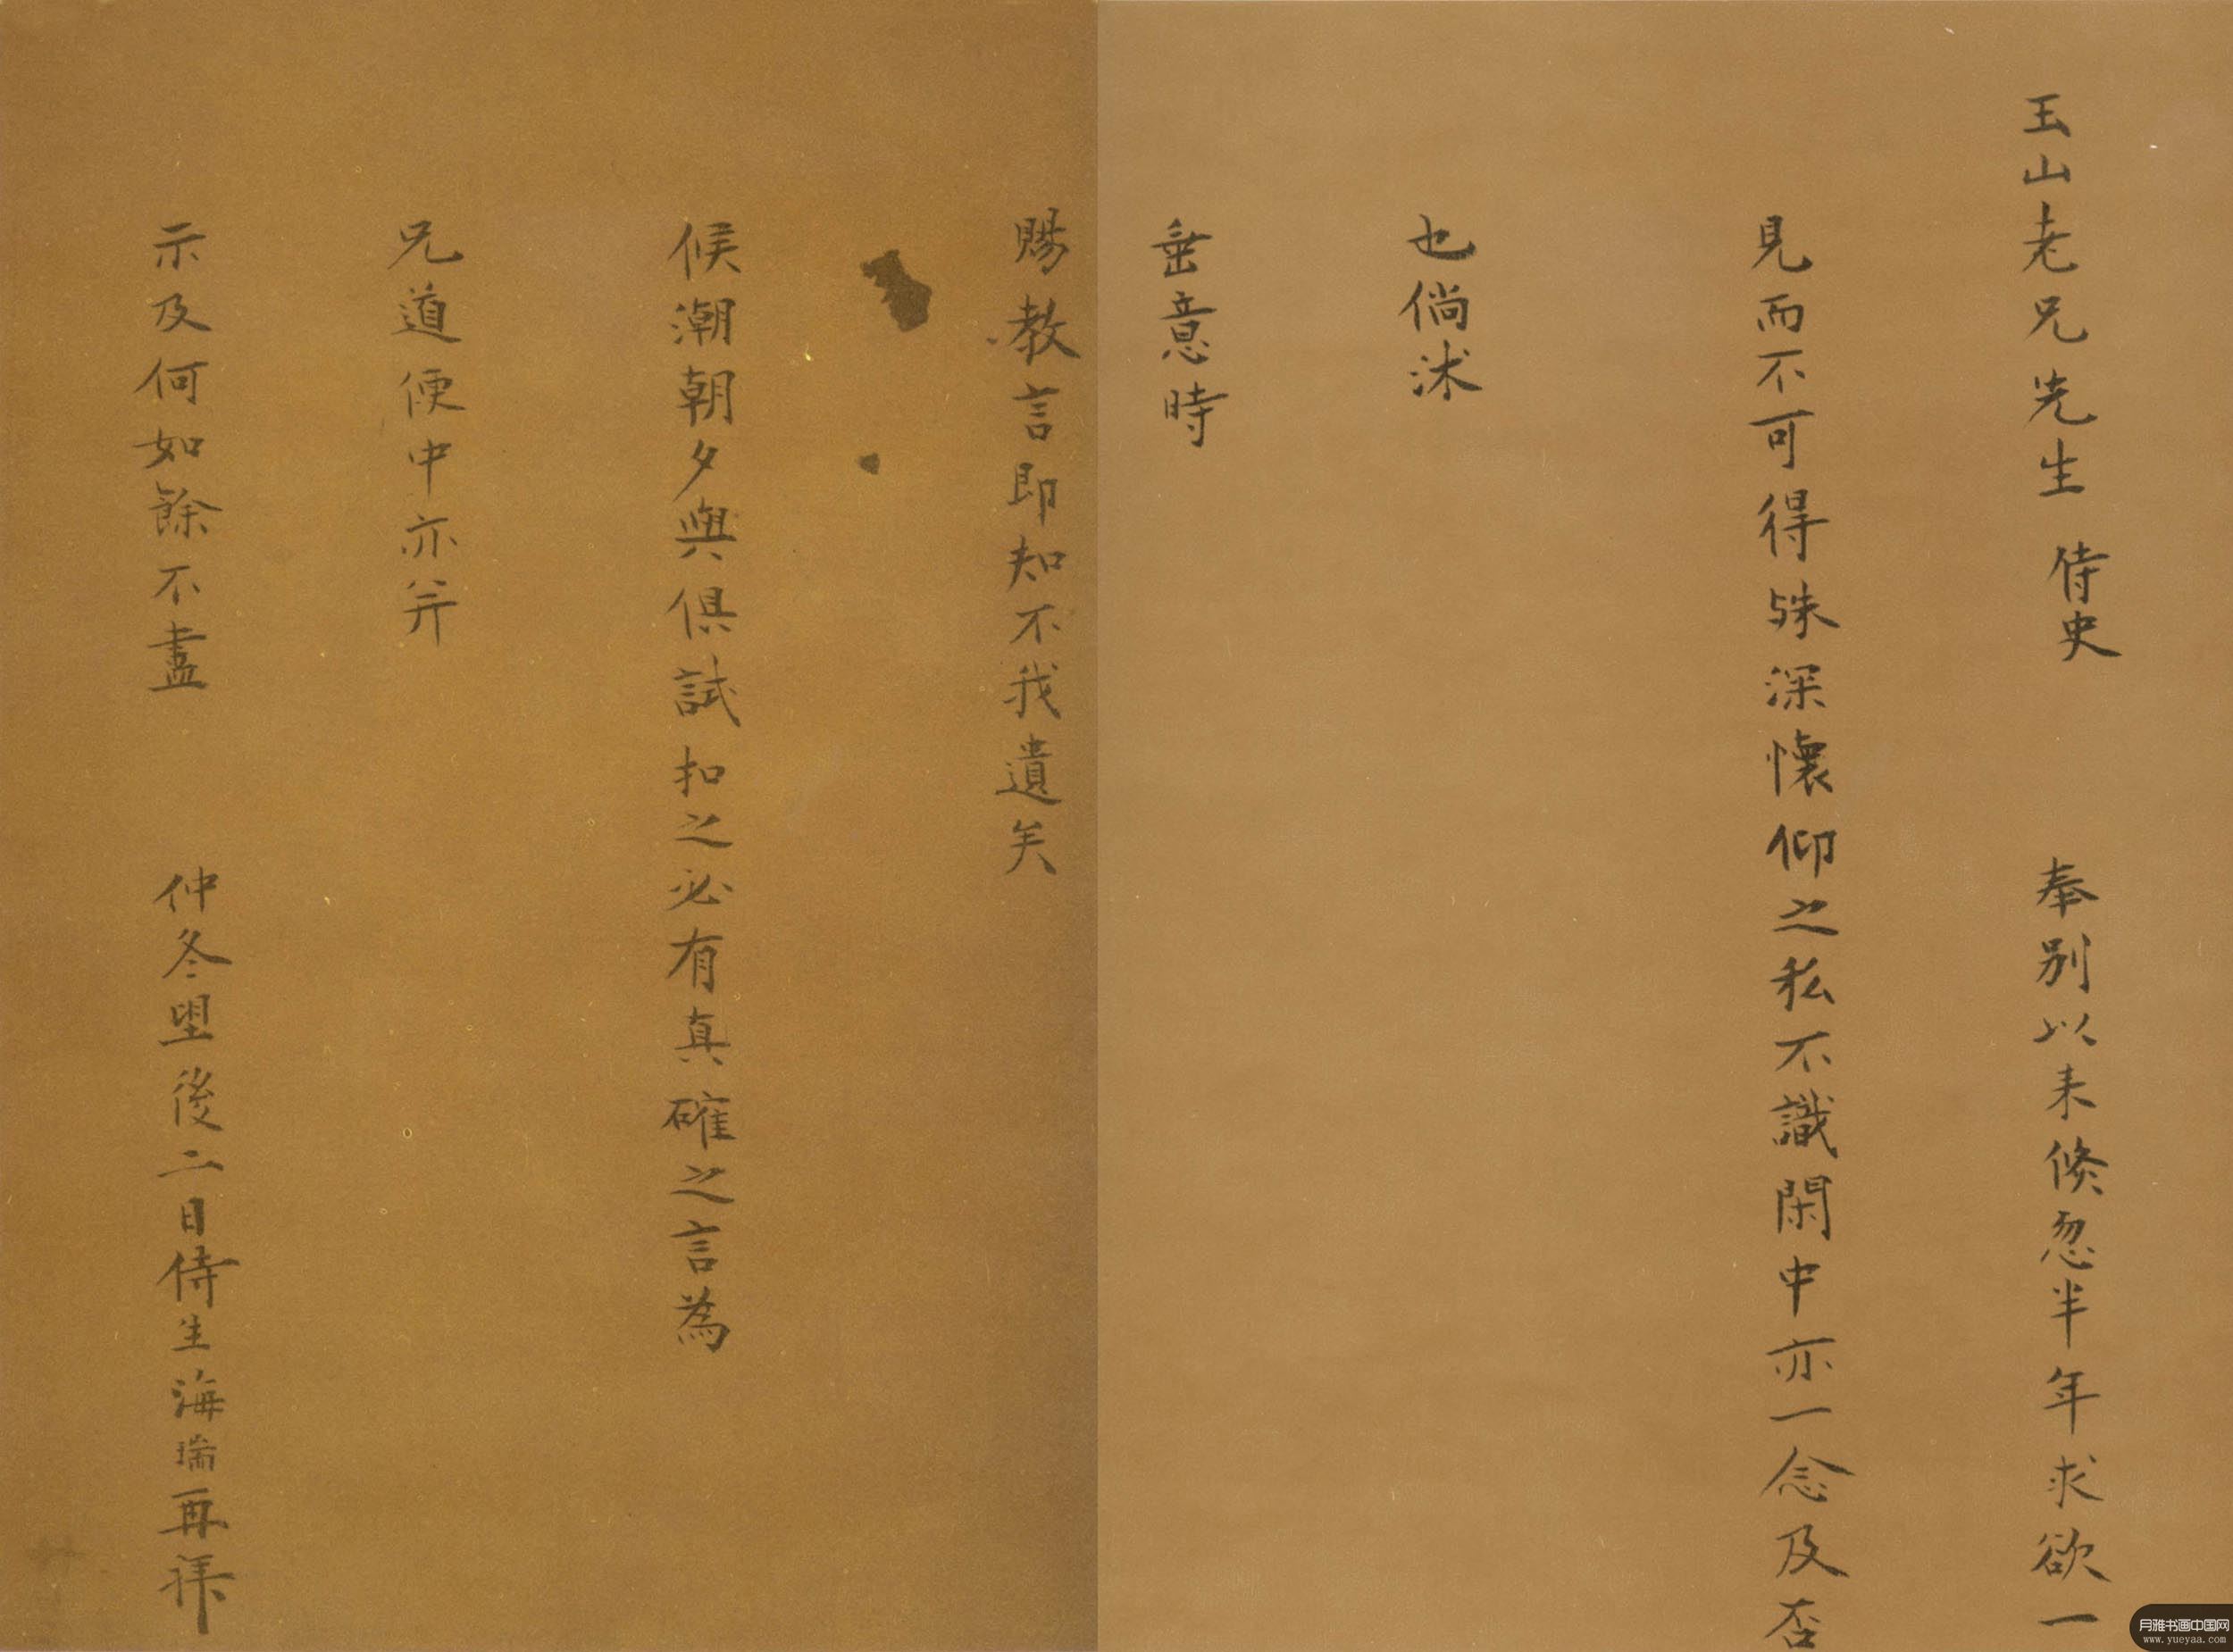 玉山老兄先生侍史 奉別以来倏忽半年求欲一
見而不可得殊深懷仰之私不識閑中亦一念及否
也倘沐
垂意時
賜教言即知不我遺矣
候潮朝夕與俱試扣之必有真確之言為
兄道便中亦并
示及何如餘不盡 仲冬朢後二日侍生海瑞再拜
月雅书画中国网
www.yueyaa.com